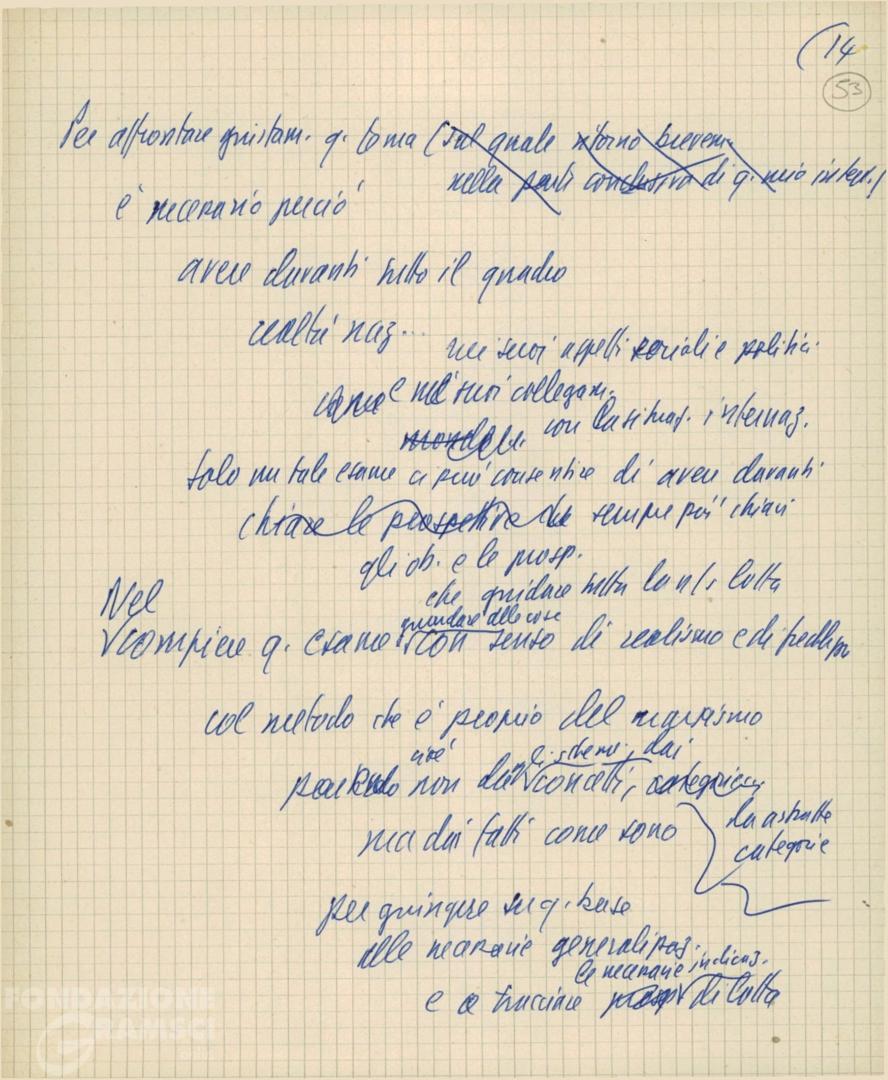 (14
53
Per affrontare giustam. q. tema (sul quale ritornò brevem.
nella parte conclusiva di q. mio interv.)
è necessario perciò
avere davanti tutto il quadro
realtà naz...
nei suoi aspetti sociali e politici
come e nei suoi collegam.
con la situaz. internaz.
solo un tale esame ci può consentire di avere davanti
chiare le prospettive che sempre più chiari
gli ob. e le prosp.
che guidare tutta la ns/ lotta
Nel
guardare alle cose
compiere q. esame con senso di realismo e di
col metodo che è proprio del marxismo
cioè
gli schemi, dai
partendo non dai concetti, categorie
ma dai fatti come sono
da astratte
categorie
per giungere su q. base
alle necessarie generalizzaz.
le necessarie indicaz.
e a tracciare prosp di lotta
FONDAZIONE
GRAMSCI